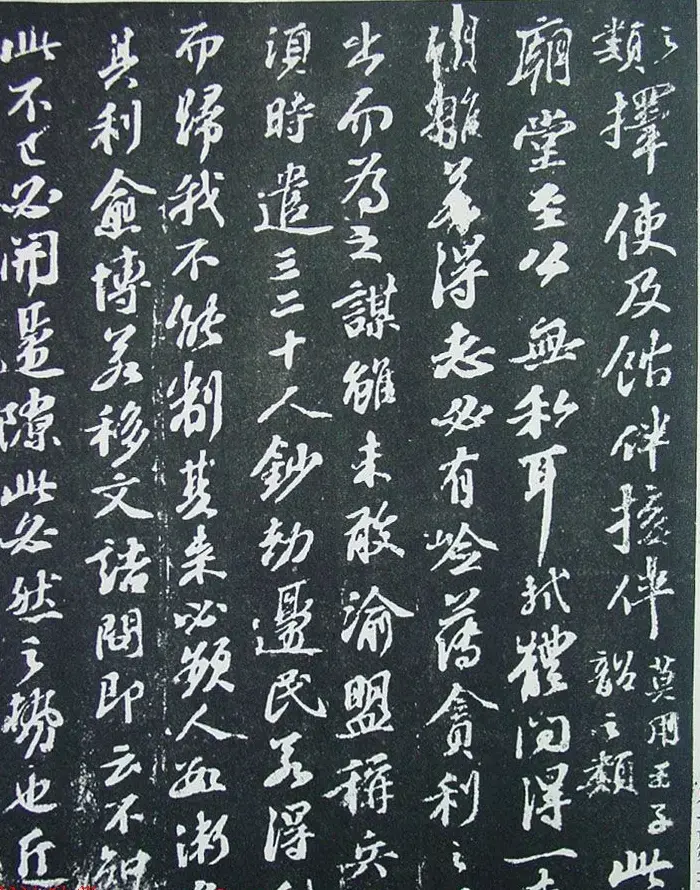 之類擇使及館伴接伴莫用王子韶之類此
廟堂至公無私耳軾體問得一
雛若得志必有嶮薄貪利之
出而為之謀雖未敢渝盟稱兵
須時遣三二十人鈔劫邊民若得
而歸我不能制其來必頻人數漸
其利愈博若移文詰問即云不知
此不已必開邊隙此必然之勢也近